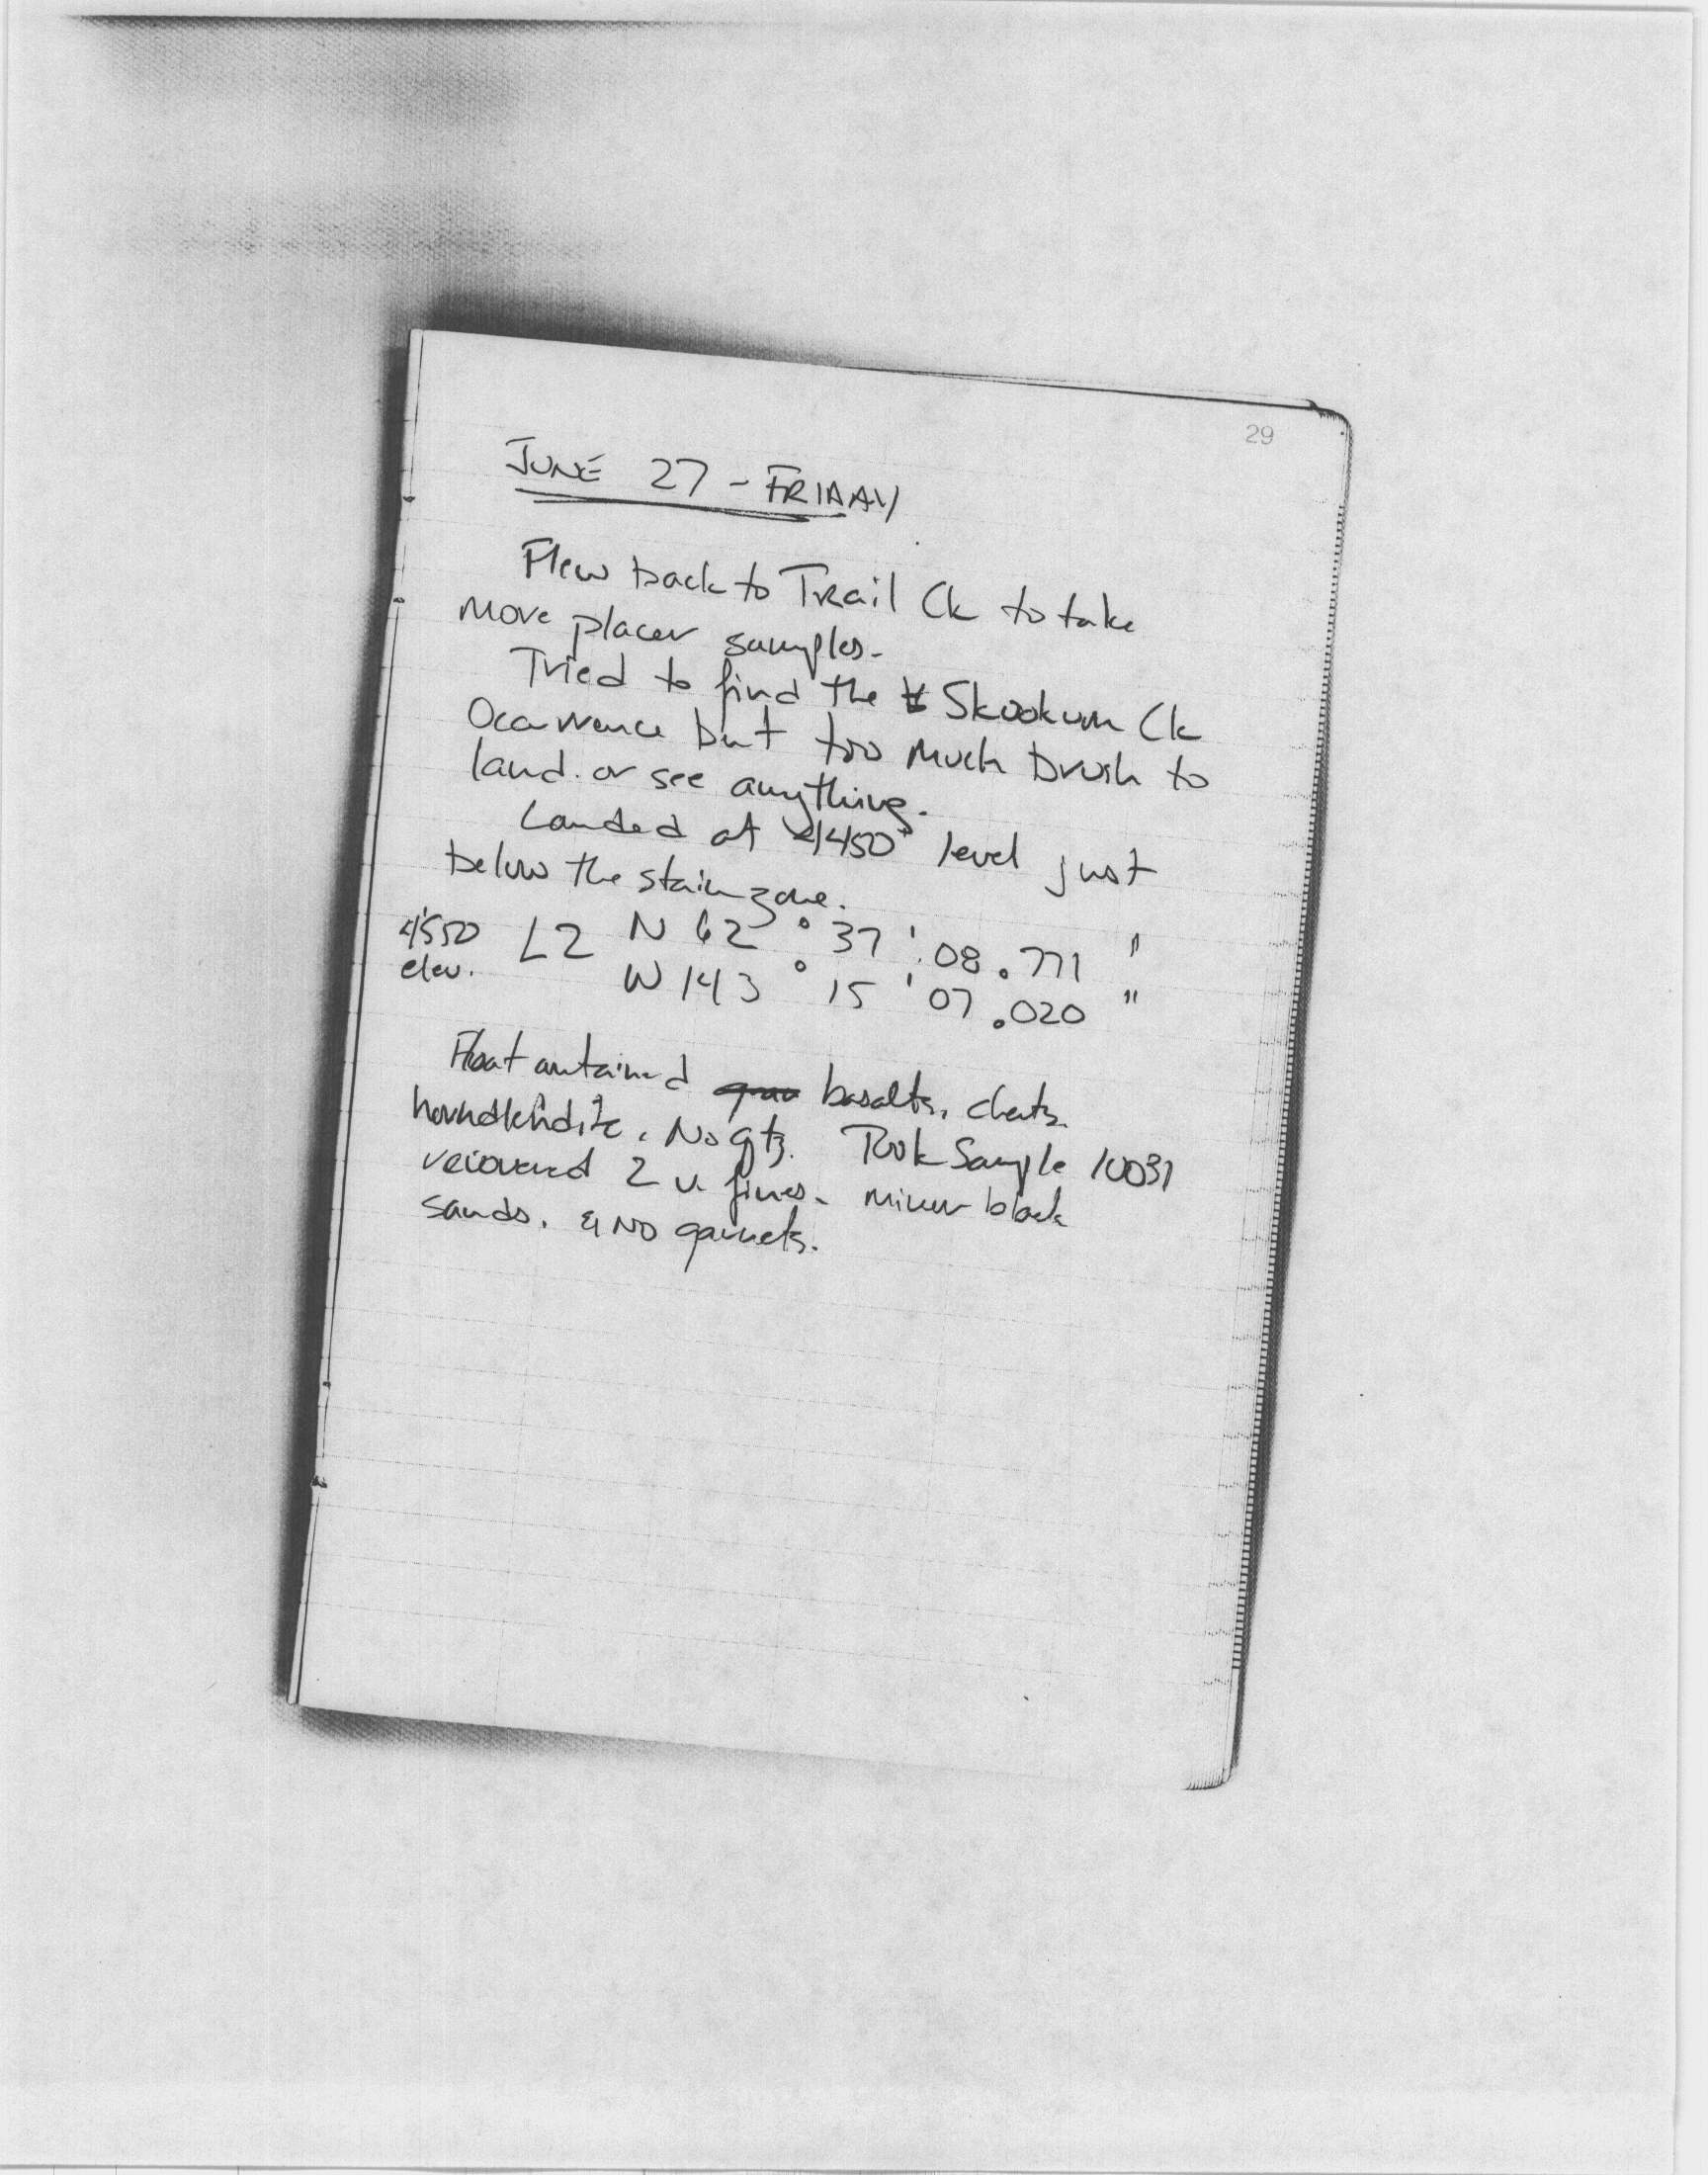 29
JUNE 27 - FRIDAY
Flew back to Trail Ck to take
more placer samples.
Tried to find the Skookum Ck
Ocurrence but too much brush to
land. or see anything.
Landed at 4450' level just
below the stain zone.
4550 L2 N 62 ° 37 ' 08.771 "
elev. W 143 ° 15 ' 07.020 "
Float contained basalts, cherts
hornblendite. No qtz. Took Sample 10031
recovered 2 v. fines. minor black
sands. & NO garnets.